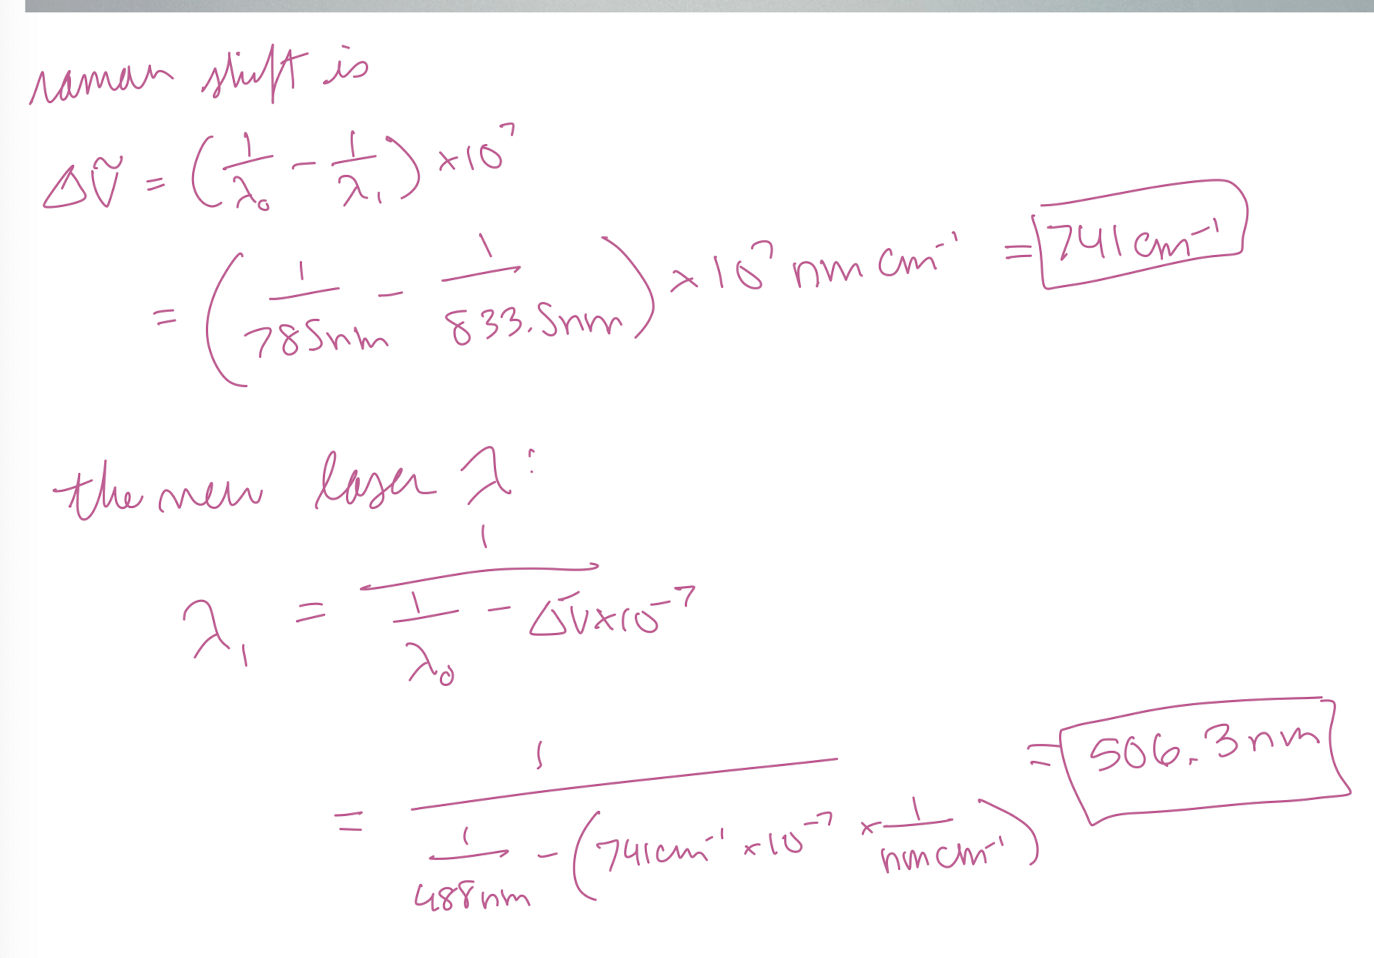 raman shift is
Δṽ = (1/λ₀ - 1/λ₁) ×10⁷
= (1/785nm - 1/833.5nm) ×10⁷ nm cm⁻¹ = 741 cm⁻¹
the new laser λ:
λ₁ = 1/(1/λ₀ - Δv̄×10⁻⁷)
= 1/(1/488nm - (741cm⁻¹ ×10⁻⁷ × 1/nm cm⁻¹)) = 506.3nm